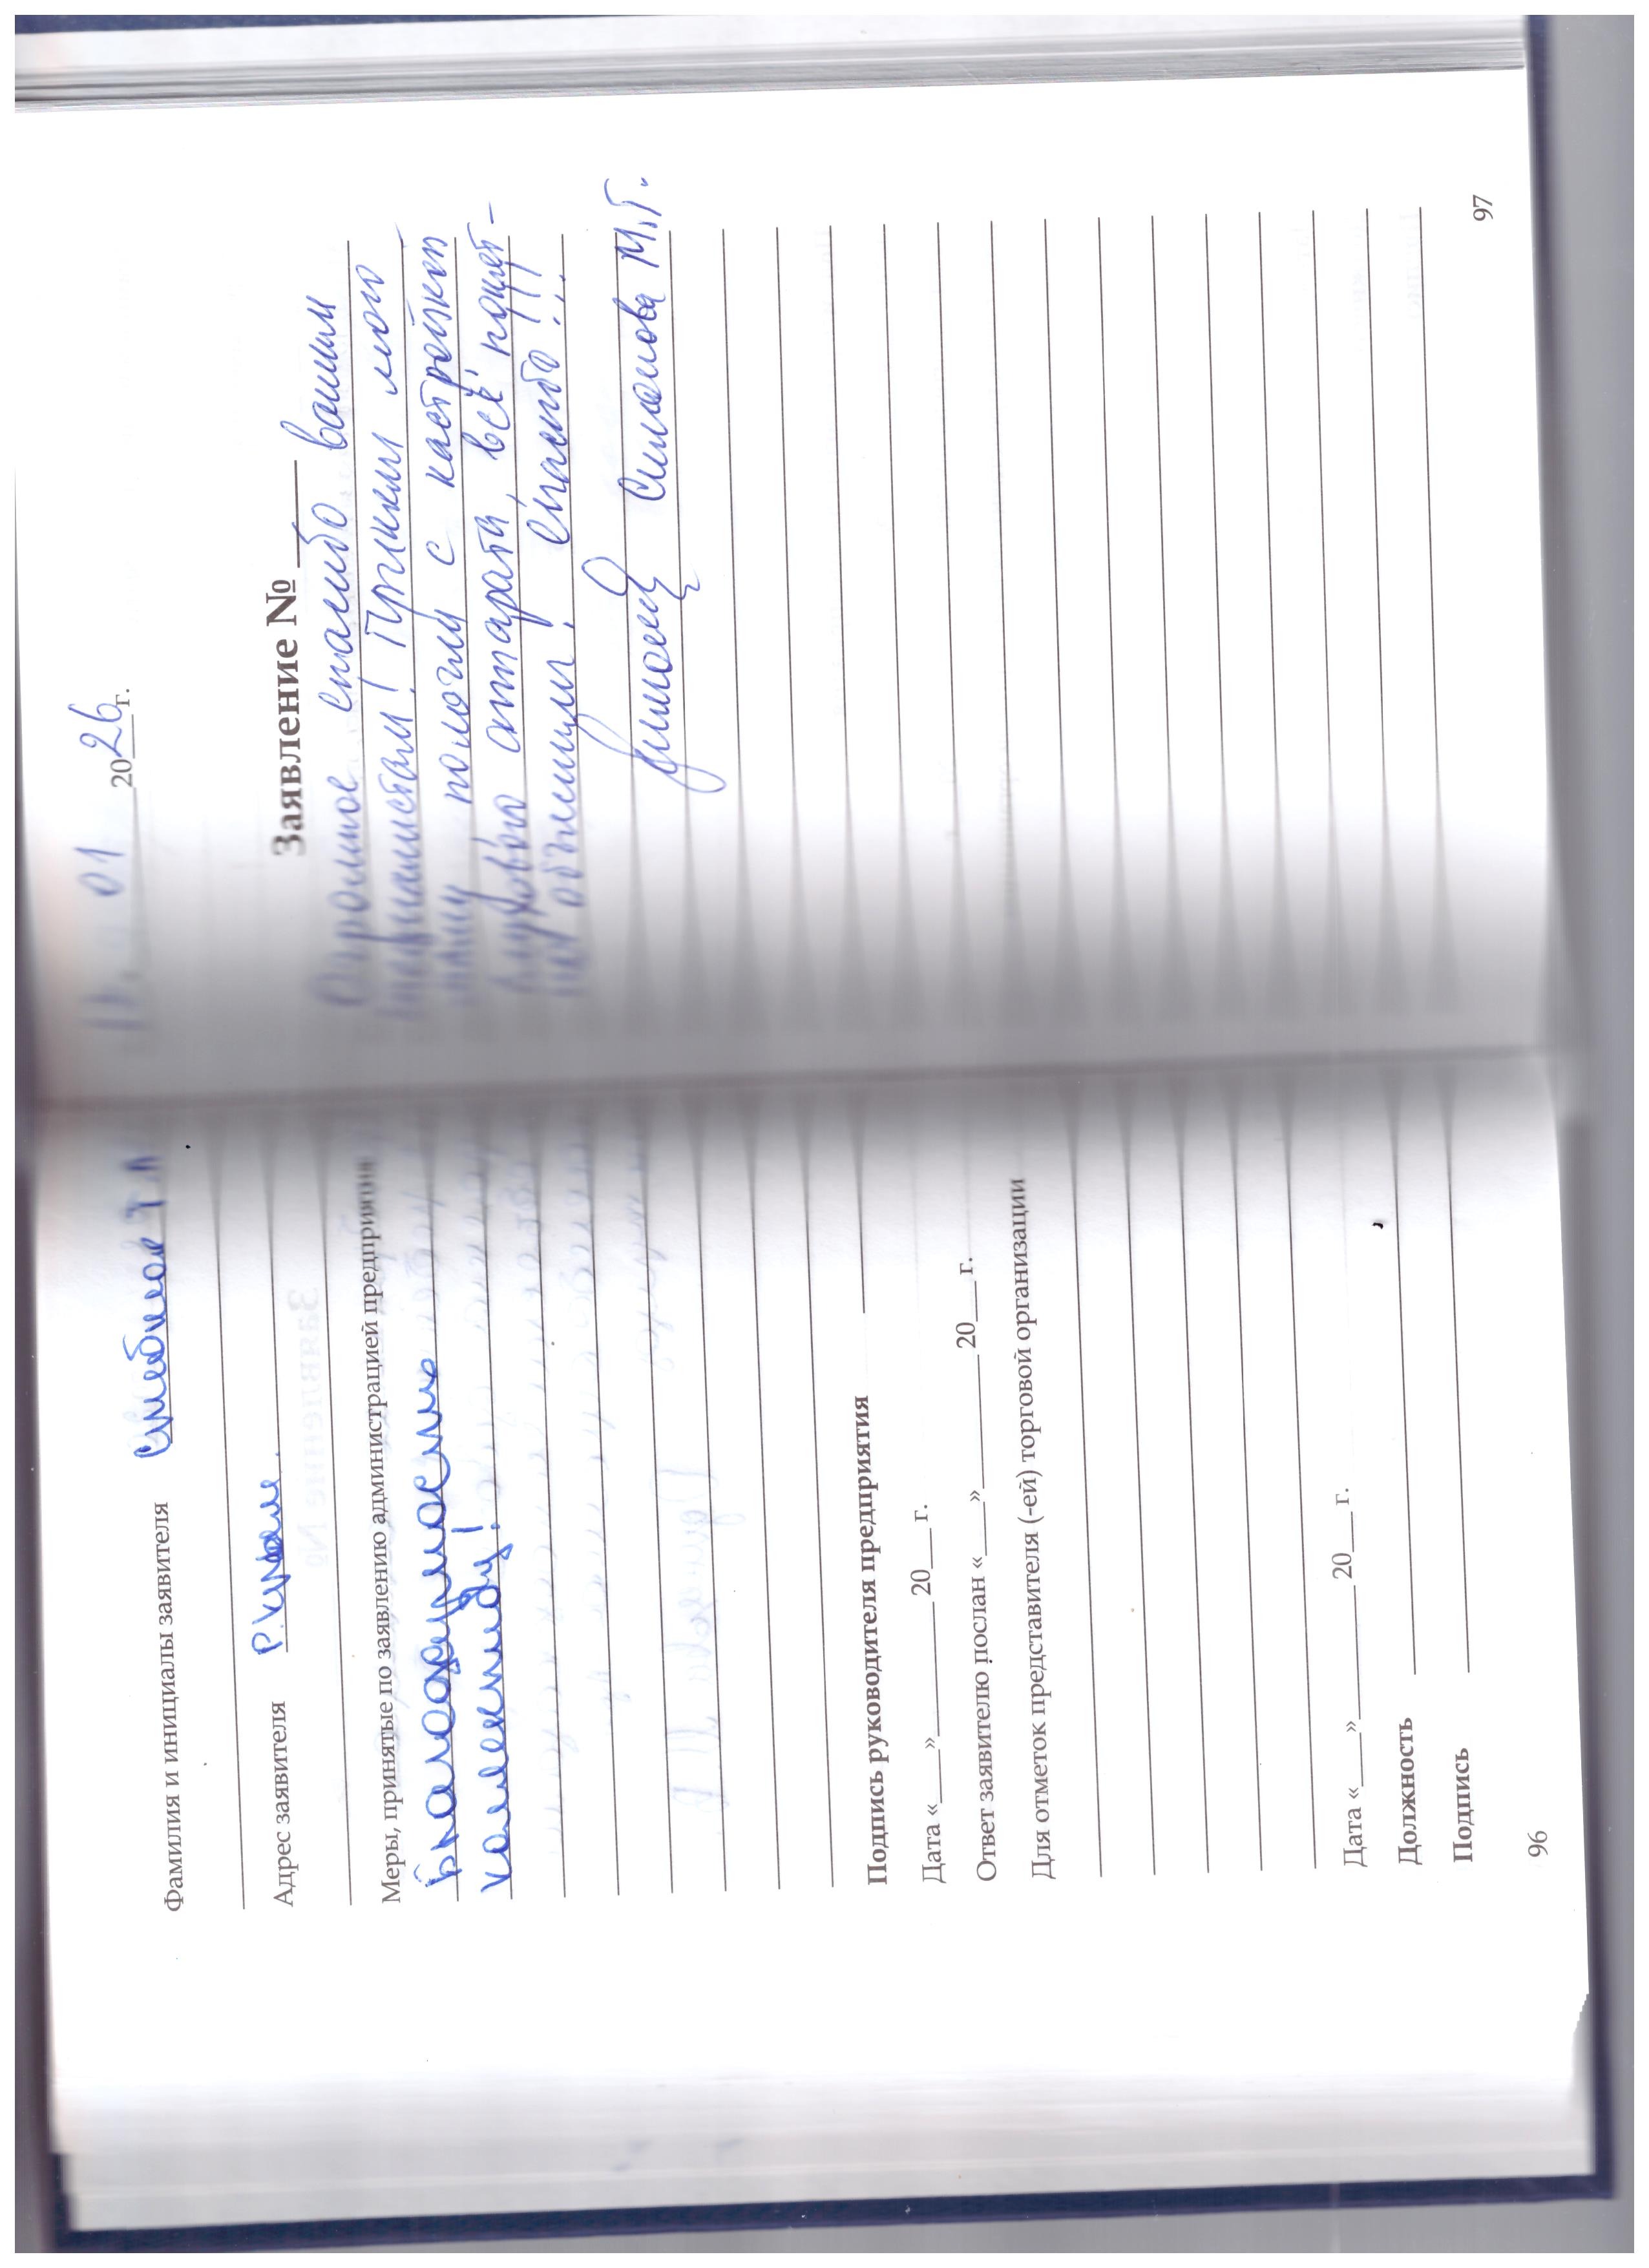 Фамилия и инициалы заявителя
Адрес заявителя
Меры, принятые по заявлению администрацией предприятия
Благодарность
коллективу!
Подпись руководителя предприятия
Дата «___»________20___г.
Ответ заявителю послан «___»________20___г.
Для отметок представителя (-ей) торговой организации
Дата «___»________20___г.
Должность
Подпись
96
01 2026г.
Заявление №
Огромное спасибо вашим
специалистам! Приняли мою
маму помогли с настройкой
слухового аппарата, всё понят-
но объяснили! Спасибо!!!
Симонова М.Г.
97